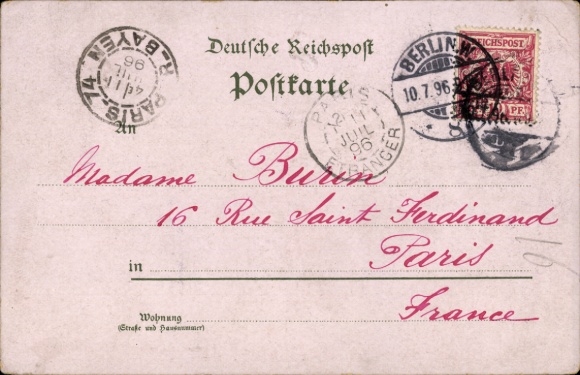 Deutsche Reichspost
Postkarte
PARIS. 74
R. BAYEN
JUIL
96
BERLIN, W.
10.7.96
8
REICHSPOST
PF.
11
JUIL
96
ETRANGER
An
Madame Burin
16 Rue Saint Ferdinand
in Paris
Wohnung France
(Straße und Hausnummer)
91